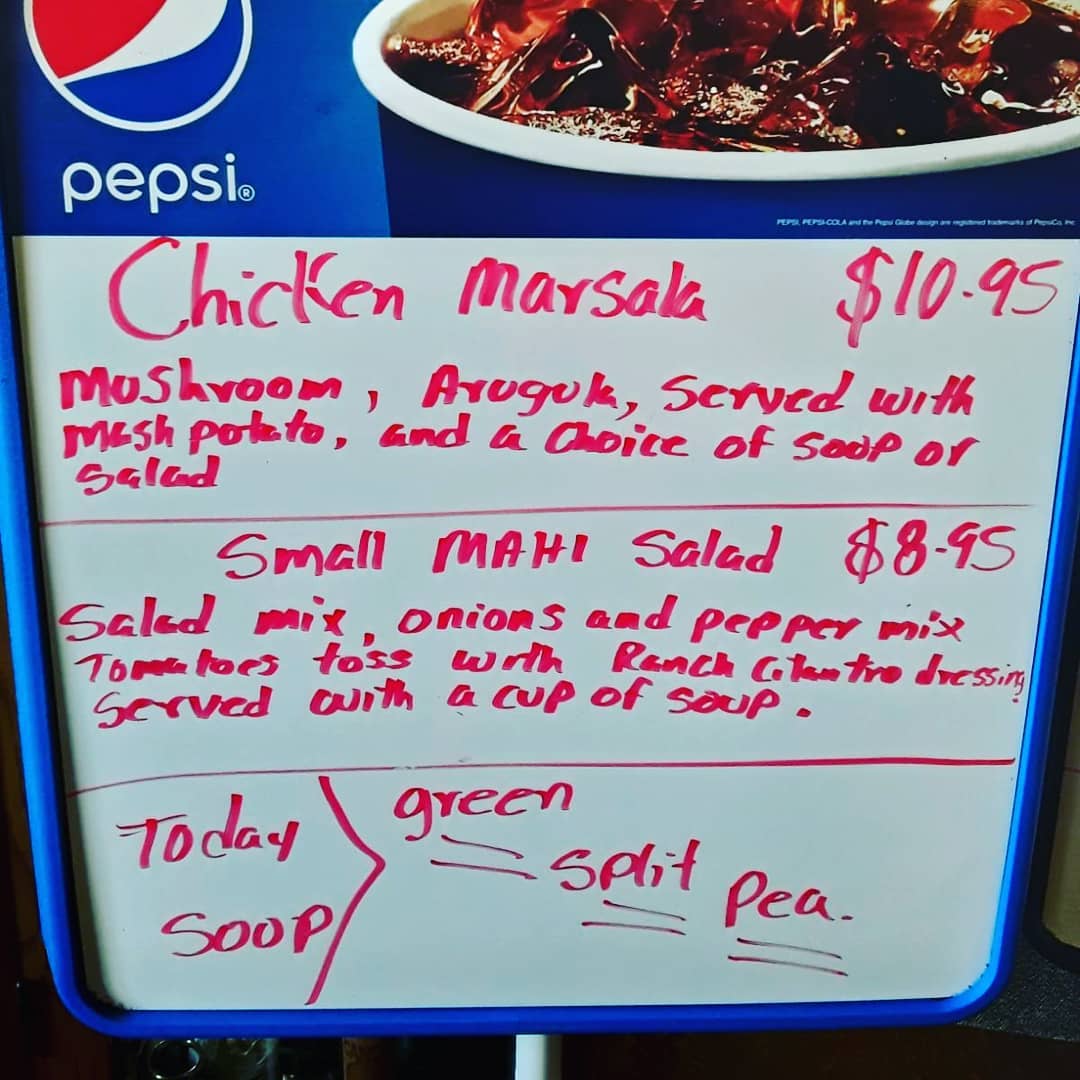 pepsi®
PEPSI, PEPSI-COLA and the Pepsi Globe design are registered trademarks of PepsiCo, Inc.
Chicken Marsala $10.95
Mushroom, Arugula, Served with
mash potato, and a choice of soop or
salad
Small MAHI Salad $8.95
Salad mix, onions and pepper mix
Tomatoes toss with Ranch Cilantro dressing
Served with a cup of soup.
Today green
split pea.
soop